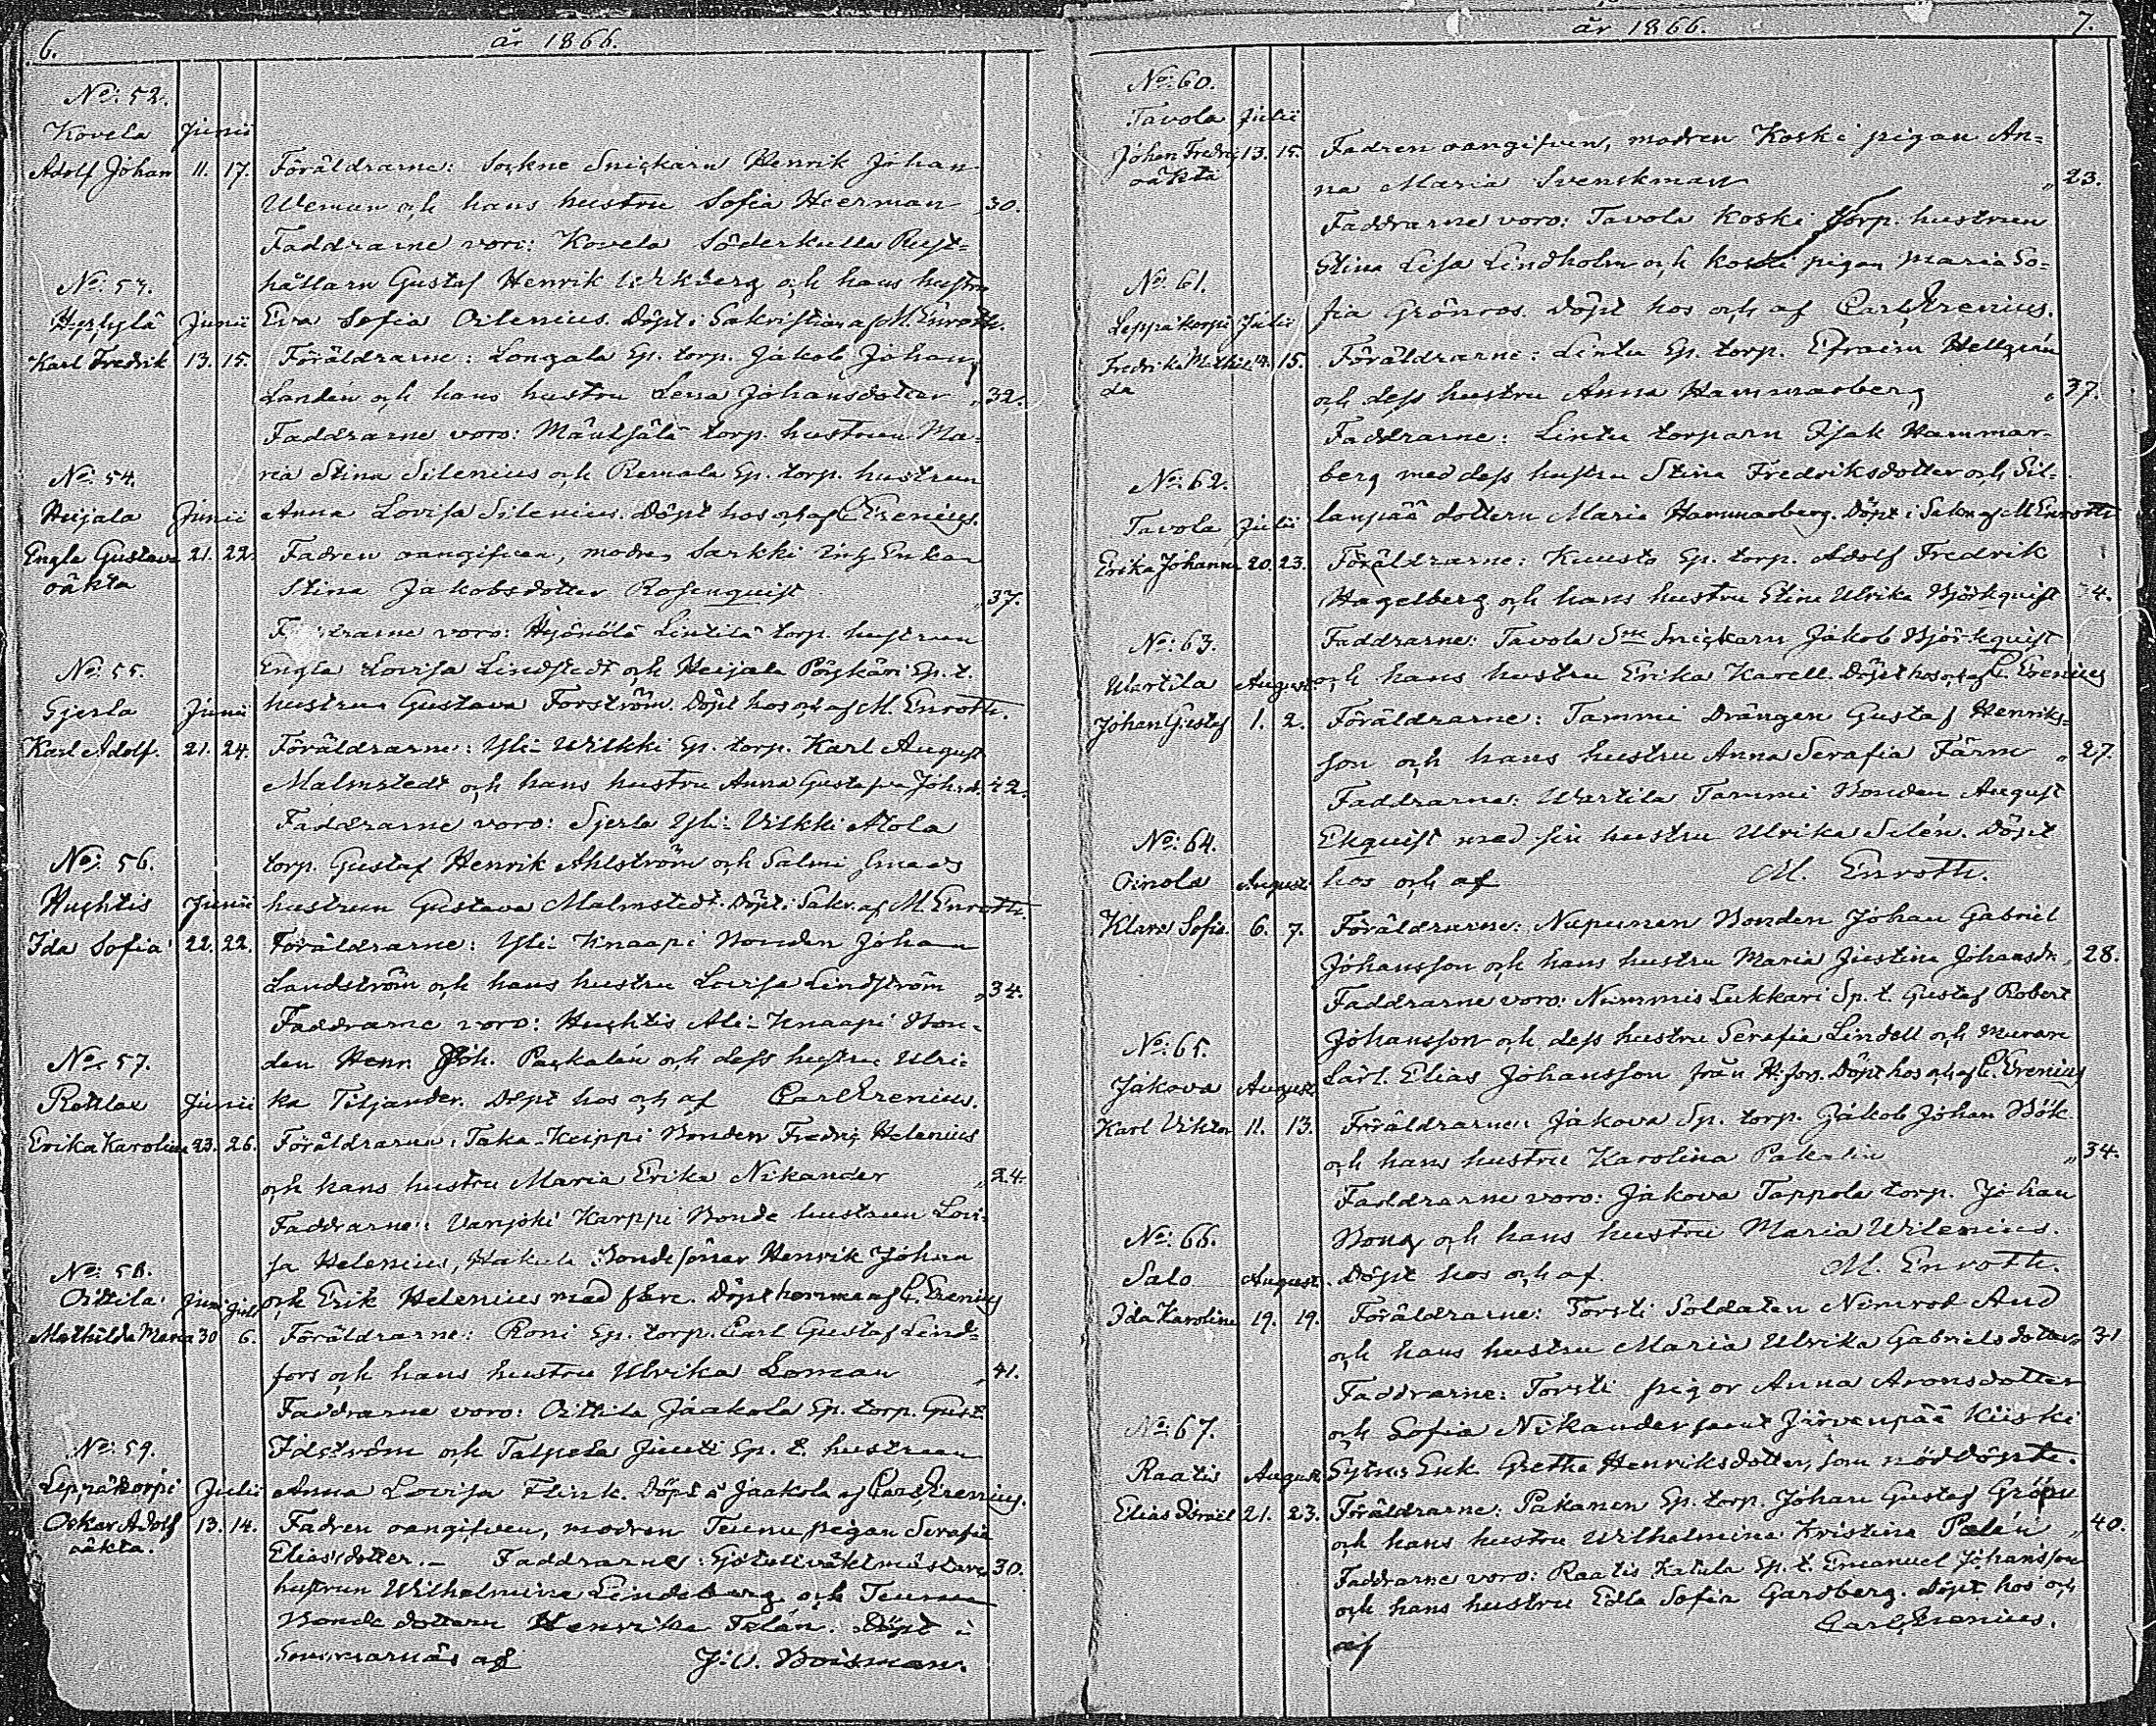 6. år 1866.
No: 52.
Kovela Junii
Adolf Johan 11. 17. Föräldrarne: Sockne Snickarn Henrik Johan
och hans hustru Sofia Heerman „ 30.
Faddrarne voro: Kovela Söderkulla Rust-
No: 53. hållarn Gustaf Henrik och hans hustru
Hyrsylä Junii Eva Sofia Oilenius. Döpt i Sakristian af M. Enroth.
Karl Fredrik 13. 15. Föräldrarne: Longala Sp. torp. Jakob Johan
Landén och hans hustru Lena Johansdotter „ 32.
Faddrarne voro: Mäntsälä torp. hustrun Ma-
No: 54. ria Stina Silenius och Remala Sp. torp. hustrun
Heijala Junii Anna Lovisa Silenius. Döpt hos och af C. Erenius.
Engla Gustava 21. 22. Fadren oangifven, modren Sarkki
oäkta Stina Jakobsdotter Rosenquist „ 37.
Faddrarne voro: Hyönölä Lintilä torp. hustrun
No: 55. Engla Lovisa Lindstedt och Heijala Sp. t.
Sjerla Junii hustrun Gustava Forström. Döpt hos och af M. Enroth.
Karl Adolf. 21. 24. Föräldrarne: Yli-Wilkki Sp. torp. Karl August
Malmstedt och hans hustru Anna Gustafva Joh.d. 42.
Faddrarne voro: Sjerla Yli-Vilkki Atola
No: 56. torp. Gustaf Henrik Ahlström och Salmi Smeds
Huhtis Junii hustrun Gustava Malmstedt. Döpt i Sakr. af M. Enroth.
Ida Sofia 22. 22. Föräldrarne: Yli Knaapi Bonden Johan
Landström och hans hustru Lovisa Lindström „ 34.
Faddrarne voro: Huhtis Ali-Knaapi Bon-
No: 57. den Henr. Joh. Packalén och dess hustru Ulri-
Rotila Junii ka Tiljander. Döpt hos och af Carl Erenius.
Erika Karolina 23. 26. Föräldrarne: Taka-Keippi Bonden Fredrig Helenius
och hans hustru Maria Erika Nikander „ 24.
Faddrarne: Vanjoki Karppi Bonde hustrun Lovi-
No: 58. sa Helenius, Hakula Bondesöner Henrik Johan
Oittila Juni Juli och Erik Helenius med flere. Döpt hemma af C. Erenius
Mathilda Maria 30 6. Föräldrarne: Roni Sp. torp. Carl Gustaf Lind-
fors och hans hustru Ulrika Loman „ 41.
Faddrarne voro: Oittila Jaakola Sp. torp. Gust.
No: 59. Idström och Talpela Juuti Sp. t. hustrun
Leppäkorpi Julii Anna Lovisa Flink. Döpt å Jaakola af Carl Erenius.
Oskar Adolf 13. 14. Fadren oangifven, modren Teunu pigan Serafia
oäkta. Eliasdotter. – Faddrarne: Sjötullvaktmästare 30.
hustrun Wilhelmina Lindeberg och Teunu
Bonde dottern Henrika Telén. Döpt i
Sommarnäs af J. O. Boisman.
år 1866. 7.
No: 60.
Tavola Julii
Johan Fredrig 13. 15. Fadren oangifven, modren Koski pigan An-
oäkta na Maria Svenskman „ 23.
Faddrarne voro: Tavola Koski torp. hustrun
Stina Lisa Lindholm och Koski pigan Maria So-
No: 61. fia Grönroos. Döpt hos och af Carl Erenius.
Leppäkorpi Julii
Fredrika Mathil- 14. 15. Föräldrarne: Lintu Sp. torp. Efraim Hellgrén
da och dess hustru Anna Hammarberg „ 37.
Faddrarne: Lintu torparn Isak Hammar-
No: 62. berg med dess hustru Stina Fredriksdotter och Sil-
Tavola Julii lanpää dottern Maria Hammarberg. Döpt i Sakr. af M Enroth
Erika Johanna 20. 23. Föräldrarne: Kuusto Sp. torp. Adolf Fredrik
Hagelberg och hans hustru Stina Ulrika Björkquist 4.
No: 63. Faddrarne: Tavola Sne Snickarn Jakob Björkquist
Wartila August. och hans hustru Erika Karell. Döpt hos och af C. Erenius
Johan Gustaf 1. 2. Föräldrarne: Tammi Drängen Gustaf Henriks-
son och hans hustru Anna Serafia Färm „ 27.
Faddrarne: Wartila Tammi Bonden August
No: 64. Ekquist med sin hustru Ulrika Silén. Döpt
Oinola August. hos och af M. Enroth.
Klara Sofia. 6. 7. Föräldrarne: Nupunen Bonden Johan Gabriel
Johansson och hans hustru Maria Justina Johansdr. „ 28.
Faddrarne voro: Nummis Lukkari Sp. t. Gustaf Robert
No: 65. Johansson och dess hustru Serafia Lindell och Murare
Jakova August. Lärl. Elias Johansson från H:fors. Döpt hos och af C. Erenius
Karl Viktor 11. 13. Föräldrarne: Jakova Sp. torp. Jakob Johan Bök
och hans hustru Karolina „ 34.
Faddrarne voro: Jakova Tappola torp. Johan
No: 66. och hans hustru Maria Wilenius.
Salo August. Döpt hos och af M. Enroth.
Ida Karolina 19. 19. Föräldrarne: Torsti Soldaten Nimrod And
och hans hustru Maria Ulrika Gabrielsdotter „ 31
Faddrarne: Torsti pigor Anna Aronsdotter
No: 67. och Sofia Nikander samt Järvenpää Kiiski
Raatis August. Enk. Gretha Henriksdotter, som nöddöpte.
Elias Israel 21. 23. Föräldrarne: Pakanen Sp. torp. Johan Gustaf Grön
och hans hustru Wilhelmina Kristina Palén „ 40.
Faddrarne voro: Raatis Katila Sp. t. Emanuel Johansson
och hans hustru Edla Sofia Gardberg. Döpt hos och
af Carl Erenius.